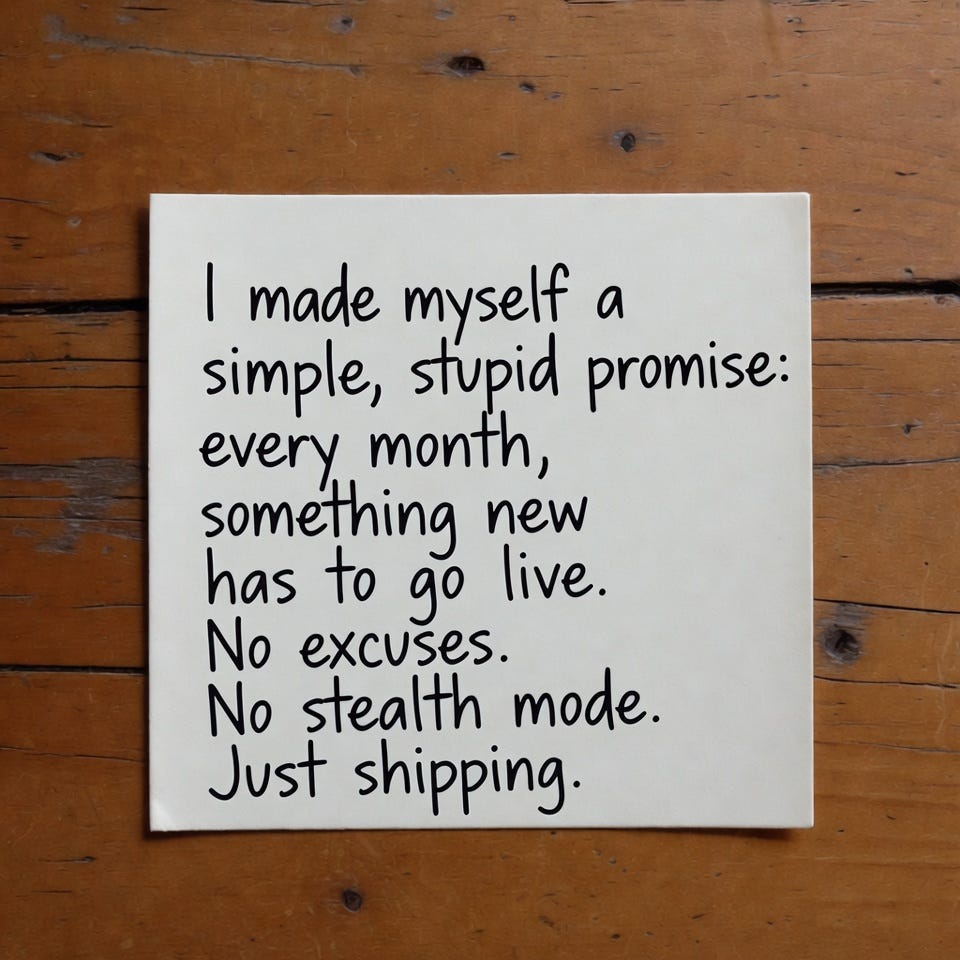 I made myself a
simple, stupid promise:
every month,
something new
has to go live.
No excuses.
No stealth mode.
Just shipping.